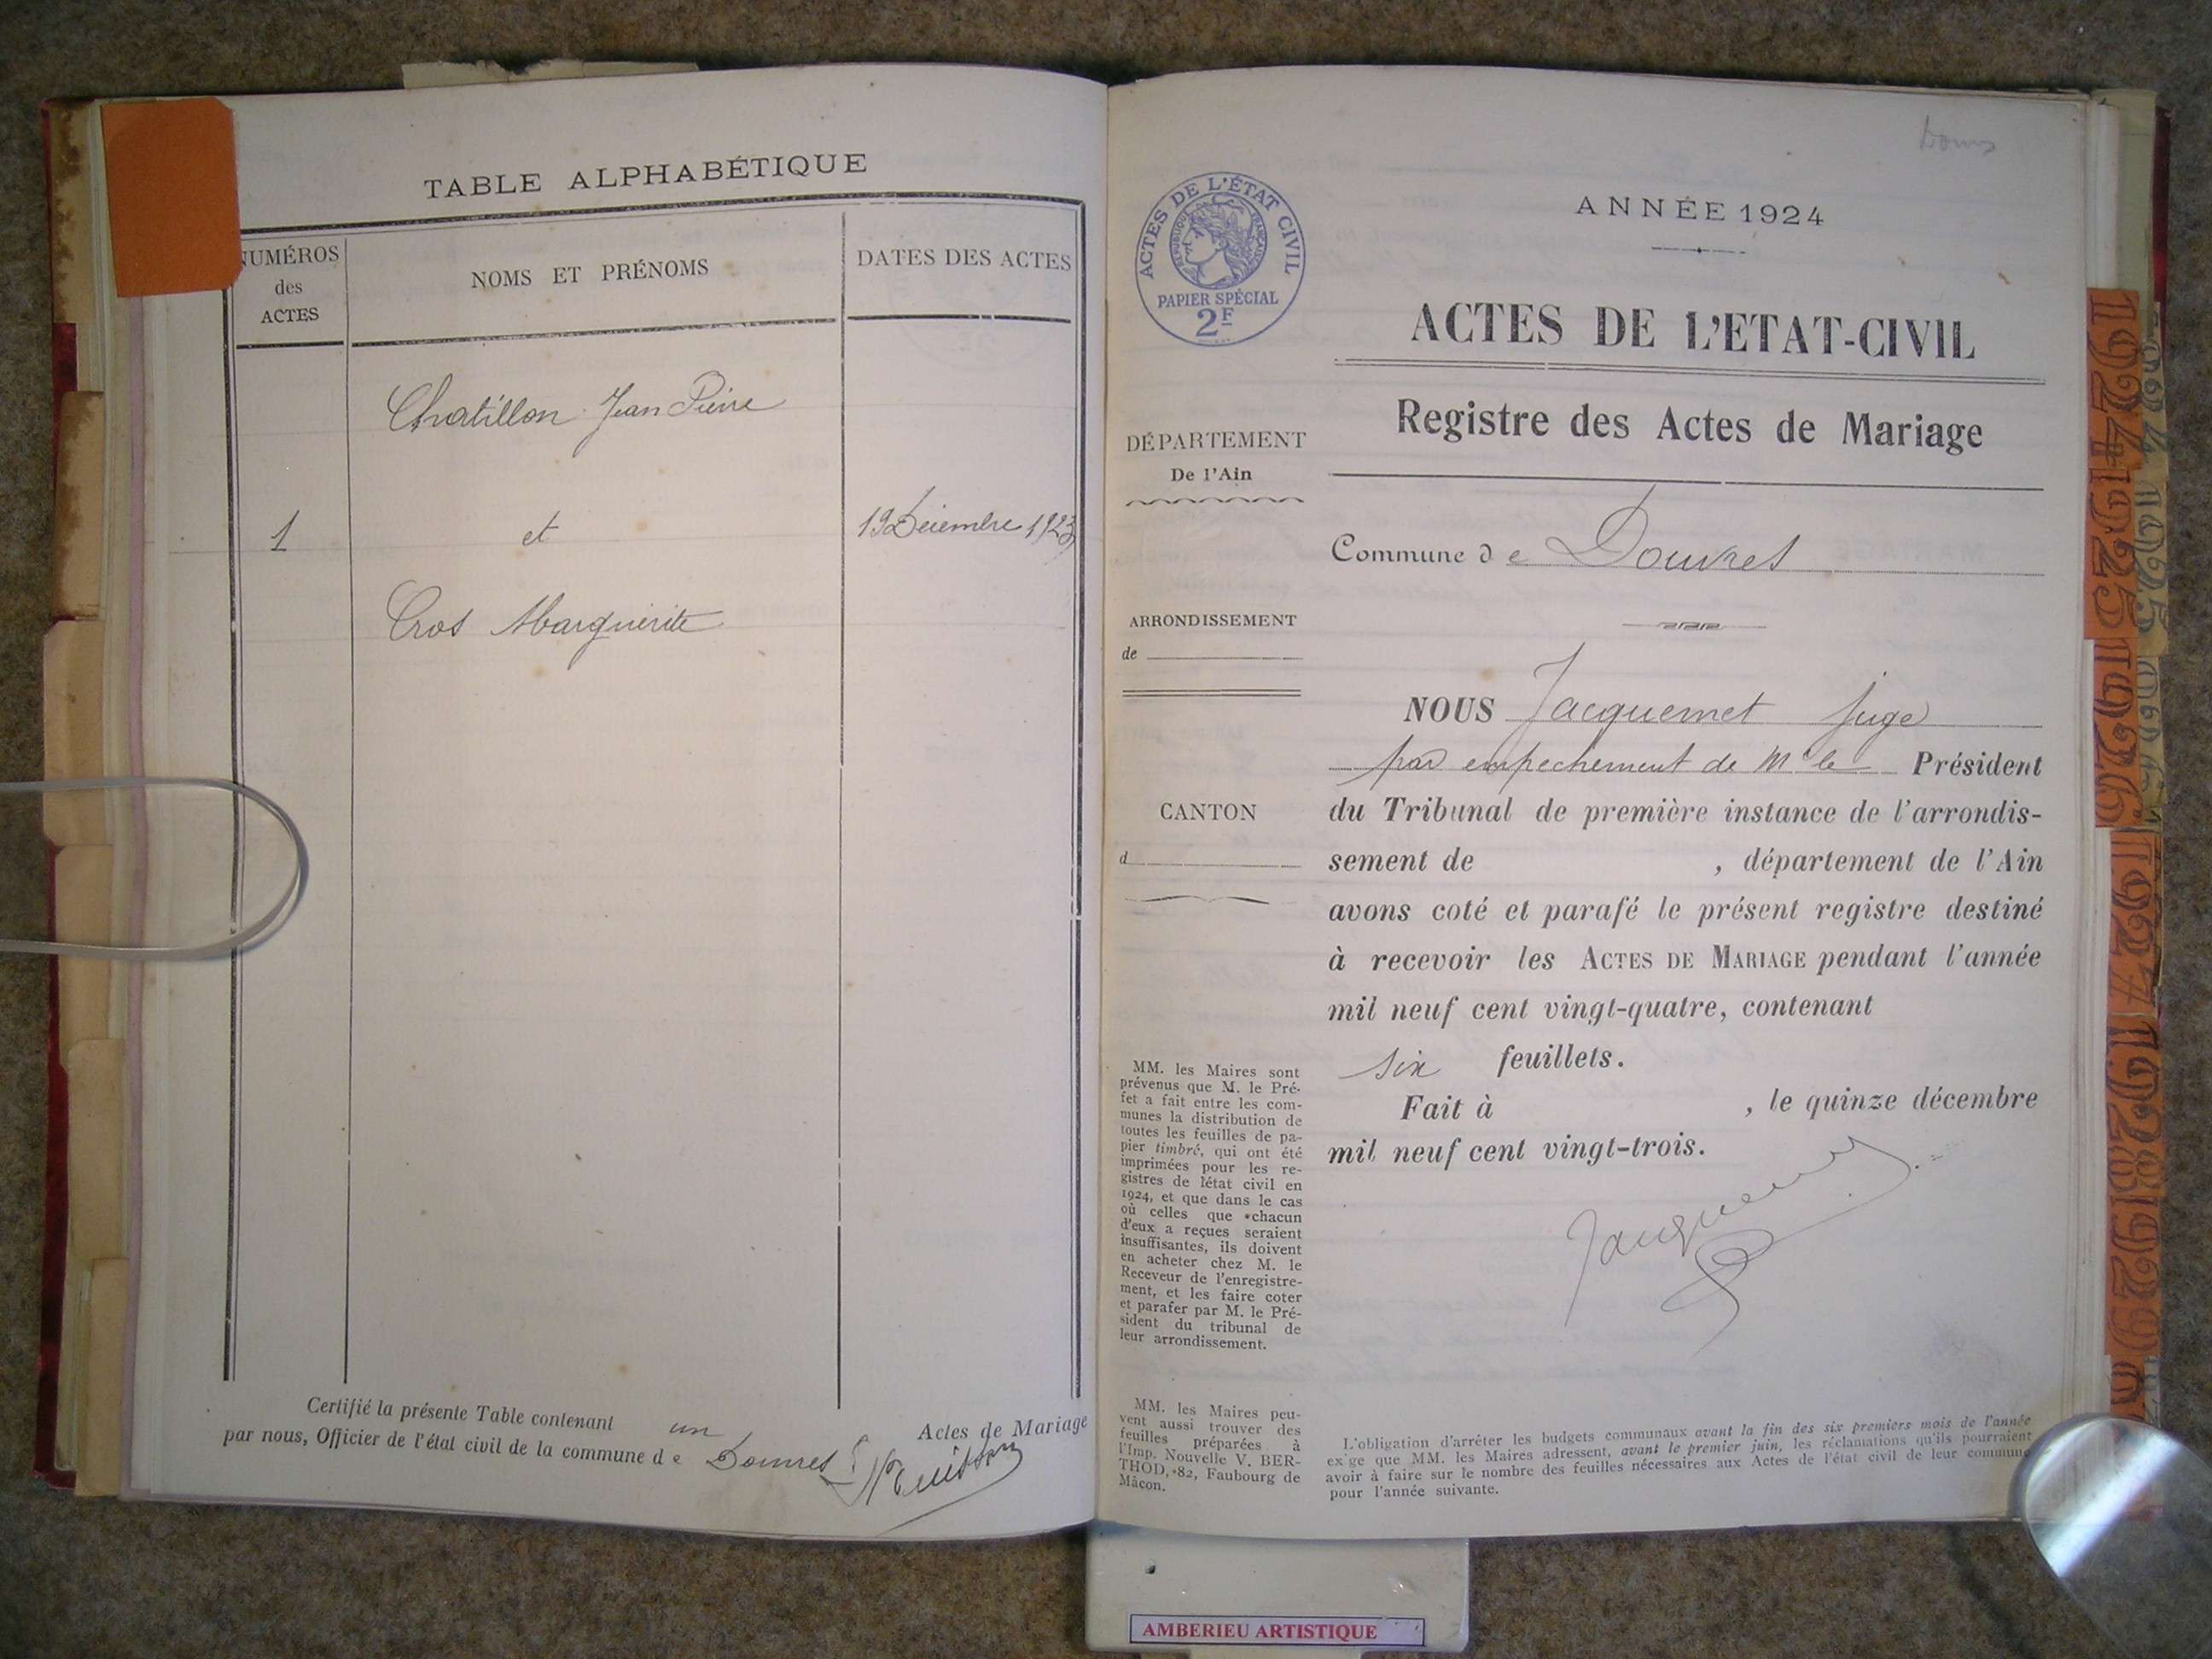 TABLE ALPHABÉTIQUE
NUMÉROS
des
ACTES
NOMS ET PRÉNOMS
DATES DES ACTES
Chatillon Jean Pierre
1
et
19 Décembre 1923
Cros Marguerite
Certifié la présente Table contenant un Actes de Mariage
par nous, Officier de l'état civil de la commune de Douvres
Douvres
ACTES DE L'ÉTAT CIVIL
RÉPUBLIQUE FRANÇAISE
PAPIER SPÉCIAL
2F
ANNÉE 1924
ACTES DE L'ETAT-CIVIL
Registre des Actes de Mariage
DÉPARTEMENT
De l'Ain
Commune de Douvres
ARRONDISSEMENT
de
CANTON
d
NOUS Jacquemet juge
par empechement de Mr le Président
du Tribunal de première instance de l'arrondis-
sement de , département de l'Ain
avons coté et parafé le présent registre destiné
à recevoir les ACTES DE MARIAGE pendant l'année
mil neuf cent vingt-quatre, contenant
six feuillets.
Fait à , le quinze décembre
mil neuf cent vingt-trois.
Jacquemet
MM. les Maires sont
prévenus que M. le Pré-
fet a fait entre les com-
munes la distribution de
toutes les feuilles de pa-
pier timbré, qui ont été
imprimées pour les re-
gistres de l'état civil en
1924, et que dans le cas
où celles que chacun
d'eux a reçues seraient
insuffisantes, ils doivent
en acheter chez M. le
Receveur de l'enregistre-
ment, et les faire coter
et parafer par M. le Pré-
sident du tribunal de
leur arrondissement.
MM. les Maires peu-
vent aussi trouver des
feuilles préparées à
l'Imp. Nouvelle V. BER-
THOD, 82, Faubourg de
Mâcon.
L'obligation d'arrêter les budgets communaux avant la fin des six premiers mois de l'année
exige que MM. les Maires adressent, avant le premier juin, les réclamations qu'ils pourraient
avoir à faire sur le nombre des feuilles nécessaires aux Actes de l'état civil de leur commune
pour l'année suivante.
1924
1925
1926
1927
1928
1929
AMBERIEU ARTISTIQUE